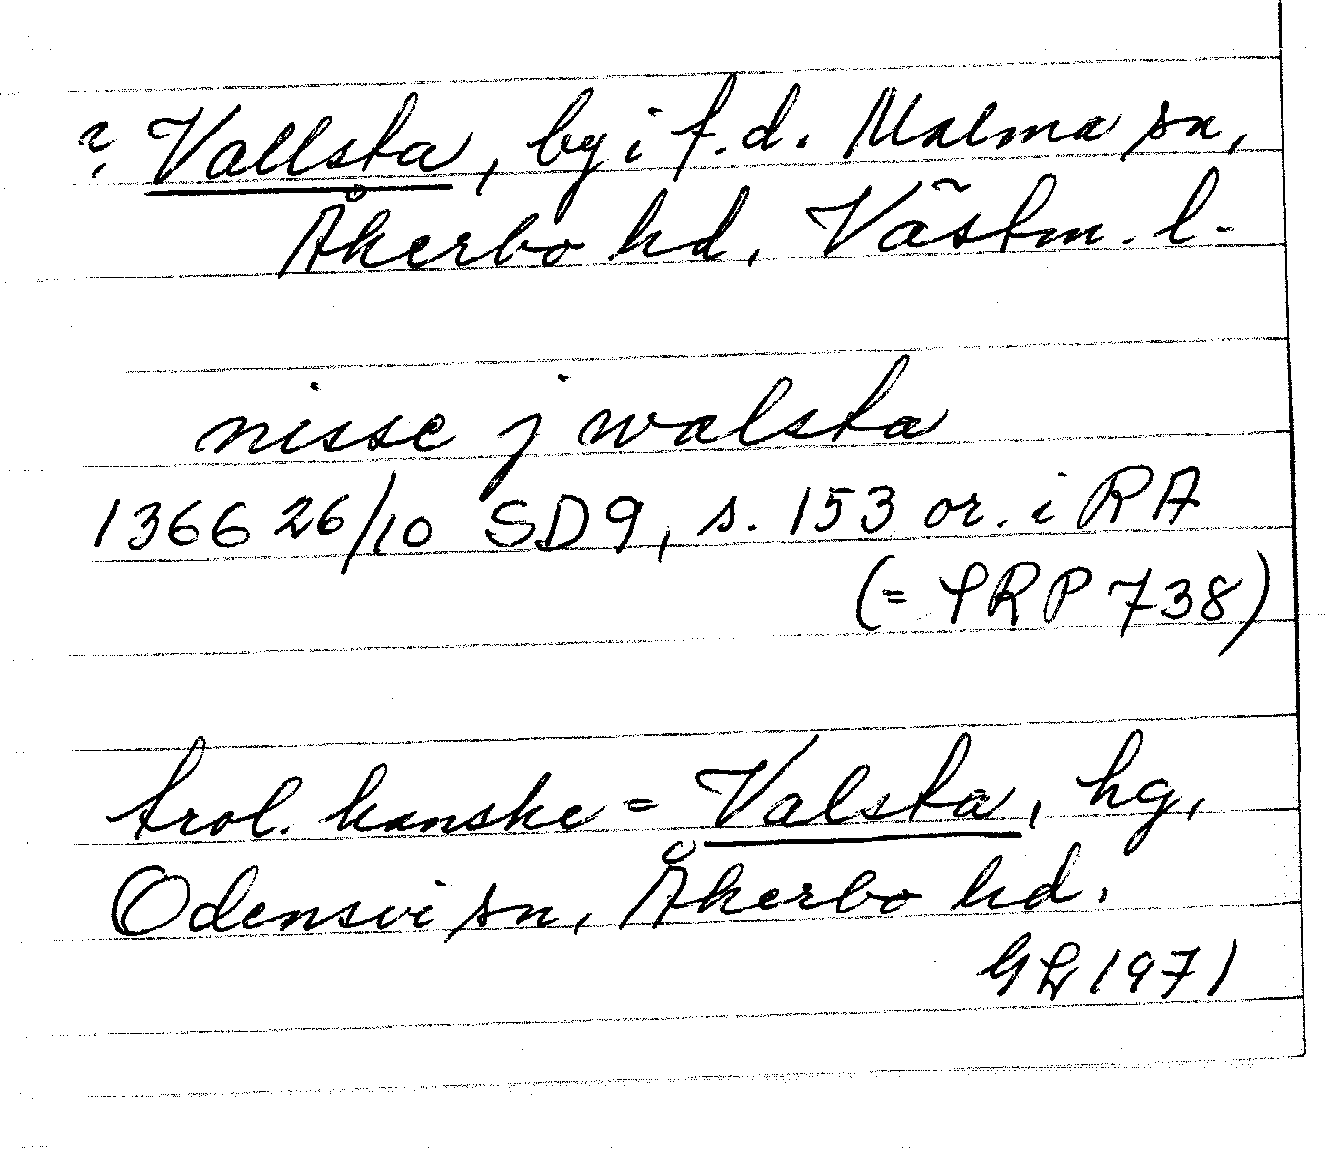 ? Vallsta, by i f.d. Malma sn,
Åkerbo hd, Västm. l.
nisse j walsta
1366 26/10 SD9, s. 153 or. i RA
(= SRP 738)
trol. kanske = Valsta, hg,
Odensvi sn, Åkerbo hd.
GL 1971